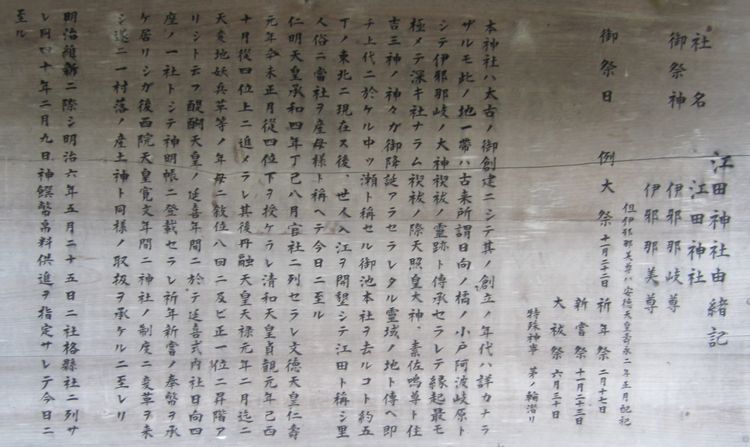 江田神社由緒記
社名 江田神社
御祭神 伊邪那岐尊
伊邪那美尊
但伊邪那美尊ハ安徳天皇壽永二年正月配記
御祭日 例大祭 十一月二十二日 祈年祭 二月十七日
新嘗祭 十一月二十三日
大祓祭 六月三十日
特殊神事 茅ノ輪潜リ
本神社ハ太古ノ御創建ニシテ其ノ創立ノ年代ハ詳カナラ
ザルモ此ノ地一帶ハ古来所謂日向ノ橘ノ小戸阿波岐原ト
シテ伊邪那岐ノ大神禊祓ノ霊跡ト傳承セラレテ縁起最モ
極メテ深キ社ナラム禊祓ノ際天照皇大神、素佐嗚尊ト住
吉三神ノ神々ガ御降誕アラセラレタル霊域ノ地ト傳ヘ即
チ上代ニ於ケル中ッ瀬ト稱セル御池本社ヲ去ルコト約五
丁ノ東北ニ現在ス後、世人入江ヲ開墾シテ江田ト稱シ里
人俗ニ當社ヲ産母様ト稱ヘテ今日ニ至ル
仁明天皇承和四年丁巳八月官社ニ列セラレ文德天皇仁壽
元年辛未正月從四位下ヲ授ケラレ清和天皇貞觀元年己酉
十月從四位上ニ進メラレ其後丹融天皇天禄元年二月迄ニ
天変地妖兵革等ノ年毎ニ敍位八回ニ及ビ正一位ニ昇階ア
リシト云フ醍醐天皇ノ延喜年間ニ於テ延喜式内社日向四
座ノ一社トシテ神明帳ニ登載セラレ祈年新嘗ノ奉幣ヲ承
ケ居リシガ後西院天皇寛文年間ニ神社ノ制度ニ変革ヲ来
シ遂ニ一村落ノ産土神ト同様ノ取扱ヲ承ケルニ至レリ
明治維新ニ際シ明治六年五月二十五日ニ社格縣社ニ列サ
レ同四十年二月九日神饌幣帛料供進ヲ指定サレテ今日ニ
至ル